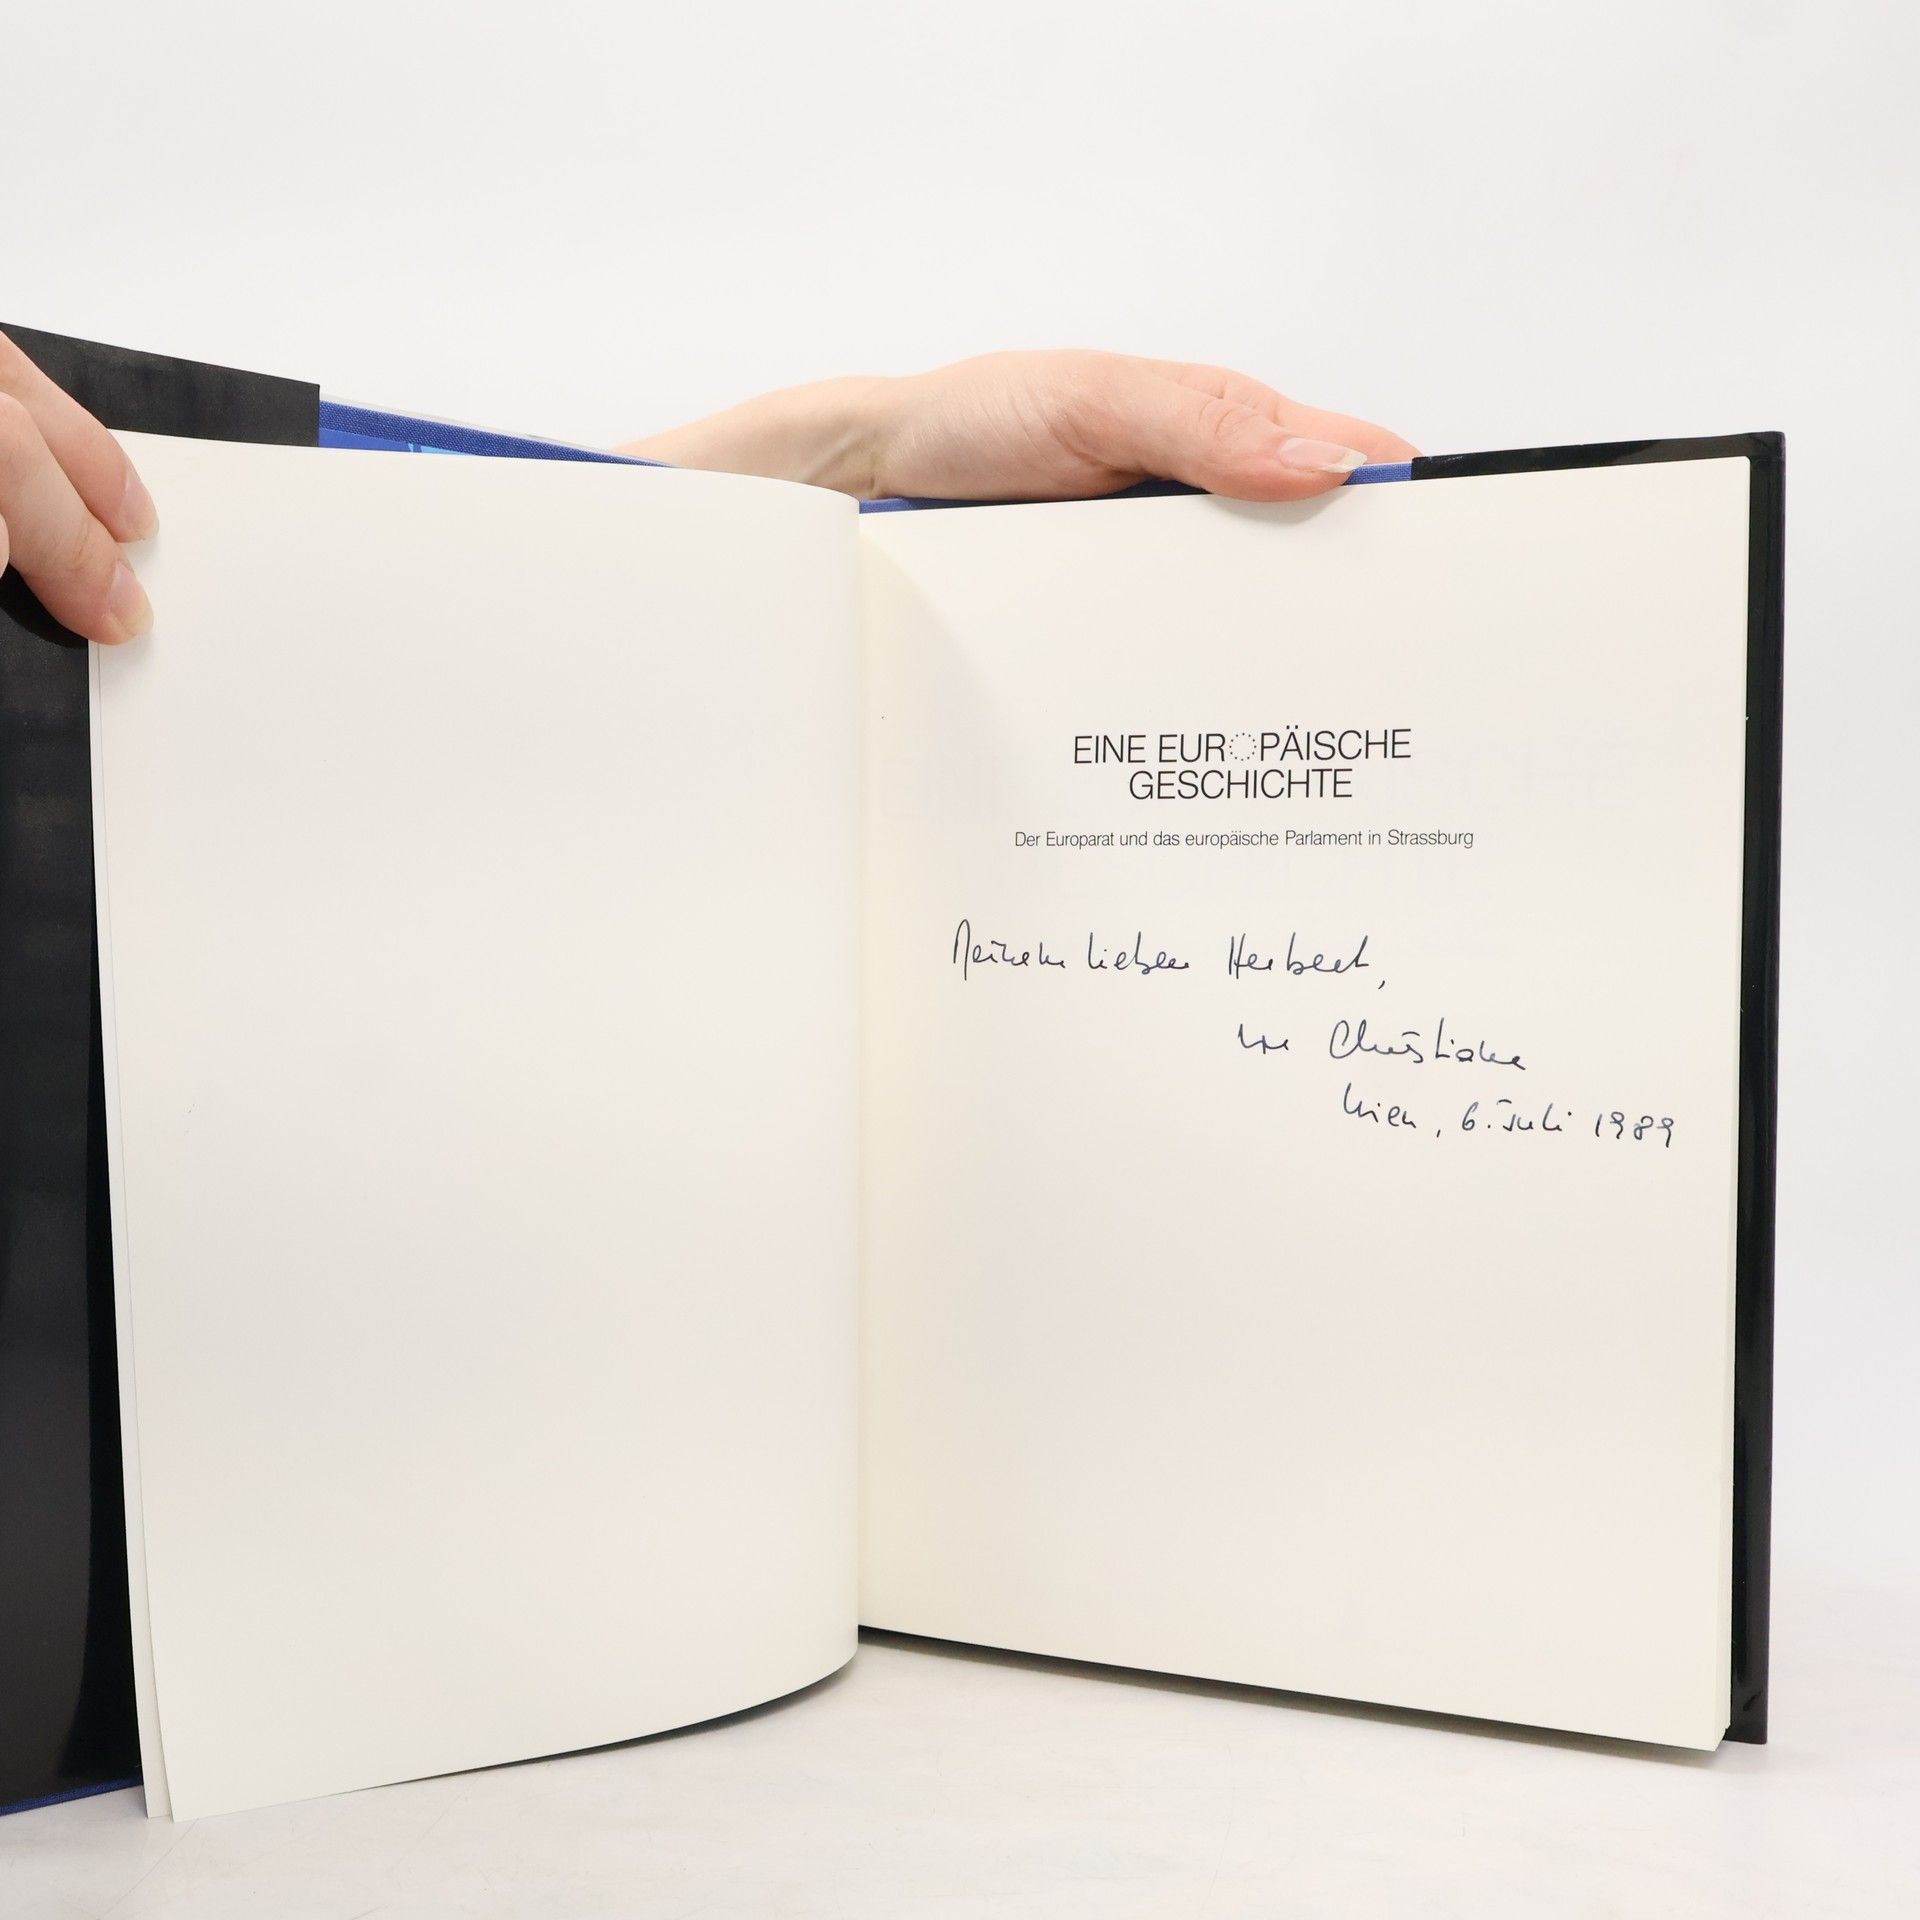 EINE EUROPÄISCHE
GESCHICHTE
Der Europarat und das europäische Parlament in Strassburg
Meinem lieben Herbert,
von Christiane
Wien, 6. Juli 1989